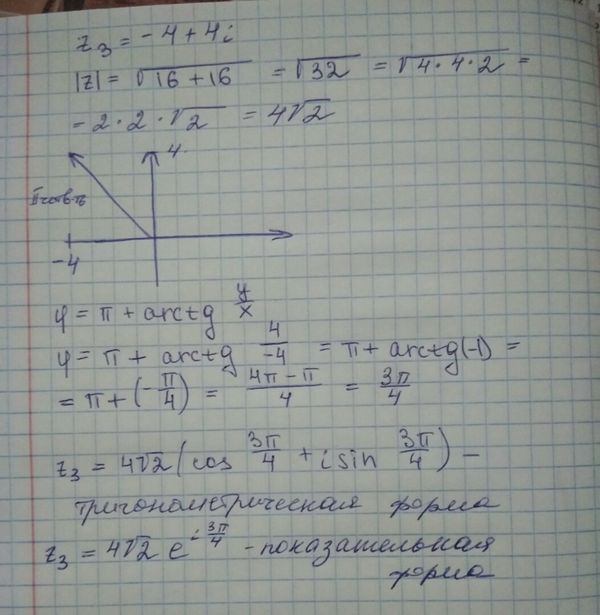 z₃ = -4 + 4i
|z| = √(16 + 16) = √32 = √(4 · 4 · 2) =
= 2 · 2 · √2 = 4√2
4
II четв-ть
-4
φ = π + arctg y/x
φ = π + arctg 4/-4 = π + arctg(-1) =
= π + (-π/4) = (4π - π)/4 = 3π/4
z₃ = 4√2 (cos 3π/4 + i sin 3π/4) -
тригонометрическая форма
z₃ = 4√2 e^(i 3π/4) - показательная
форма